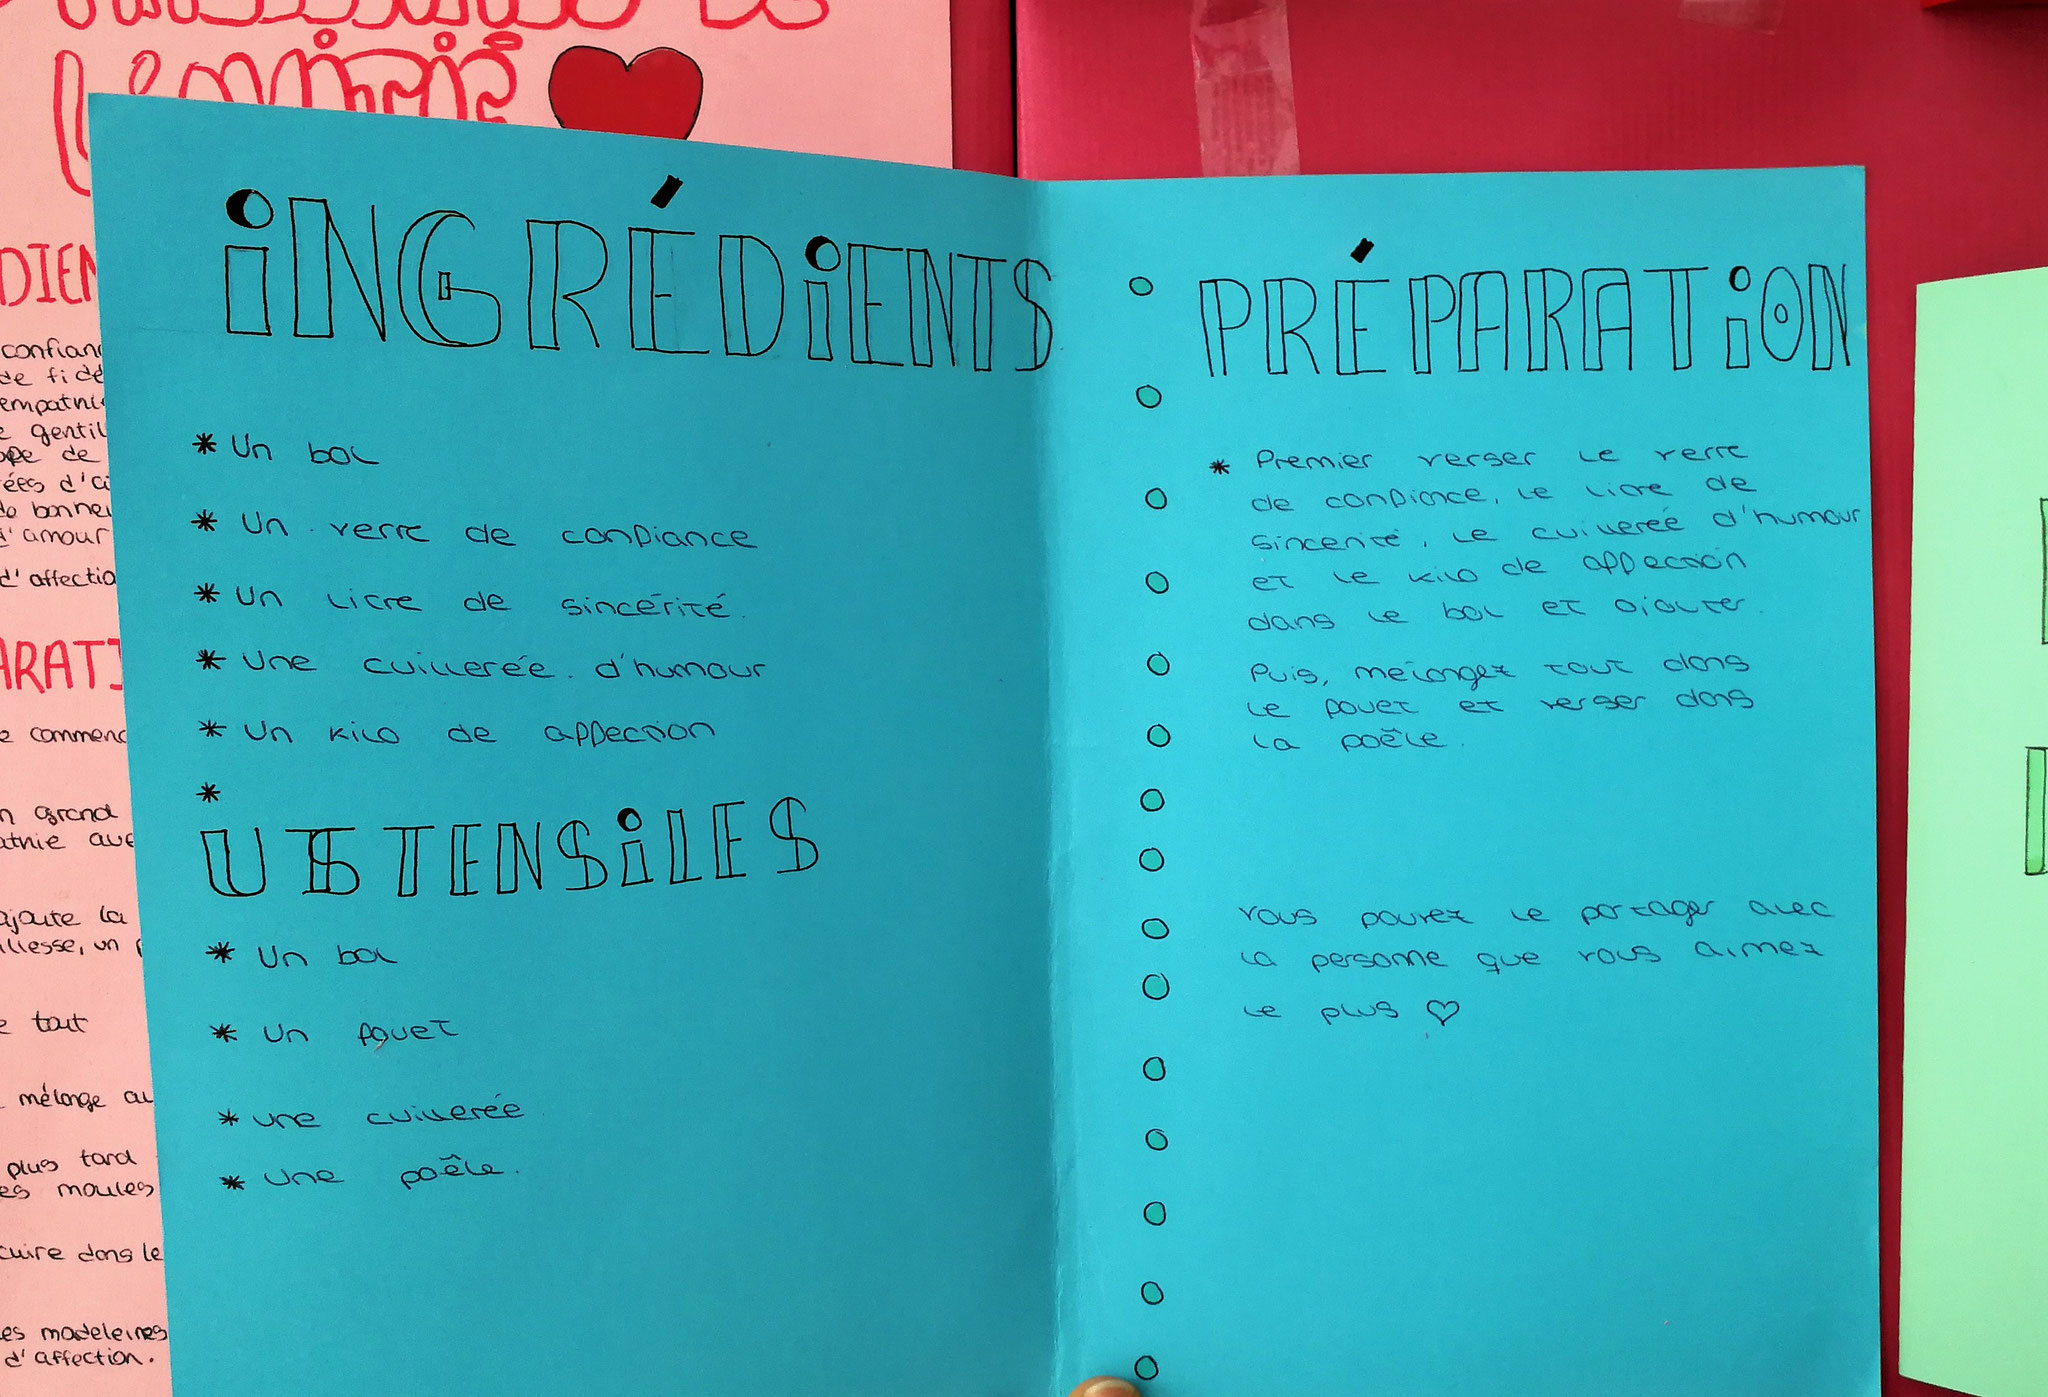 L'AMITIÉ
DIEN
confian
de fidé
empathi
e gentil
ope de
ées d'a
de bonne
d'amour
d'affectio
ARATI
e commenc
n grand
athie ave
ajoute la
llesse, un p
e tout
mélange au
plus tard
es moules
cuire dans le
es madeleines
d'affection.
iNGRÉDiENTS
* Un bol
* Un verre de confiance
* Un litre de sincérité.
* Une cuillereé d'humour
* Un kilo de affection
*
USTENSiLES
* Un bol
* Un fouet
* une cuillereé
* Une poêle.
PRÉPARATiON
* Premier verser le verre
de confiance, le litre de
sincerité, le cuillereé d'humour
et le kilo de affection
dans le bol et ajouter.
Puis, mélangez tout dans
le fouet et verser dans
la poêle.
Vous pouvez le partager avec
la personne que vous aimez
le plus ♡